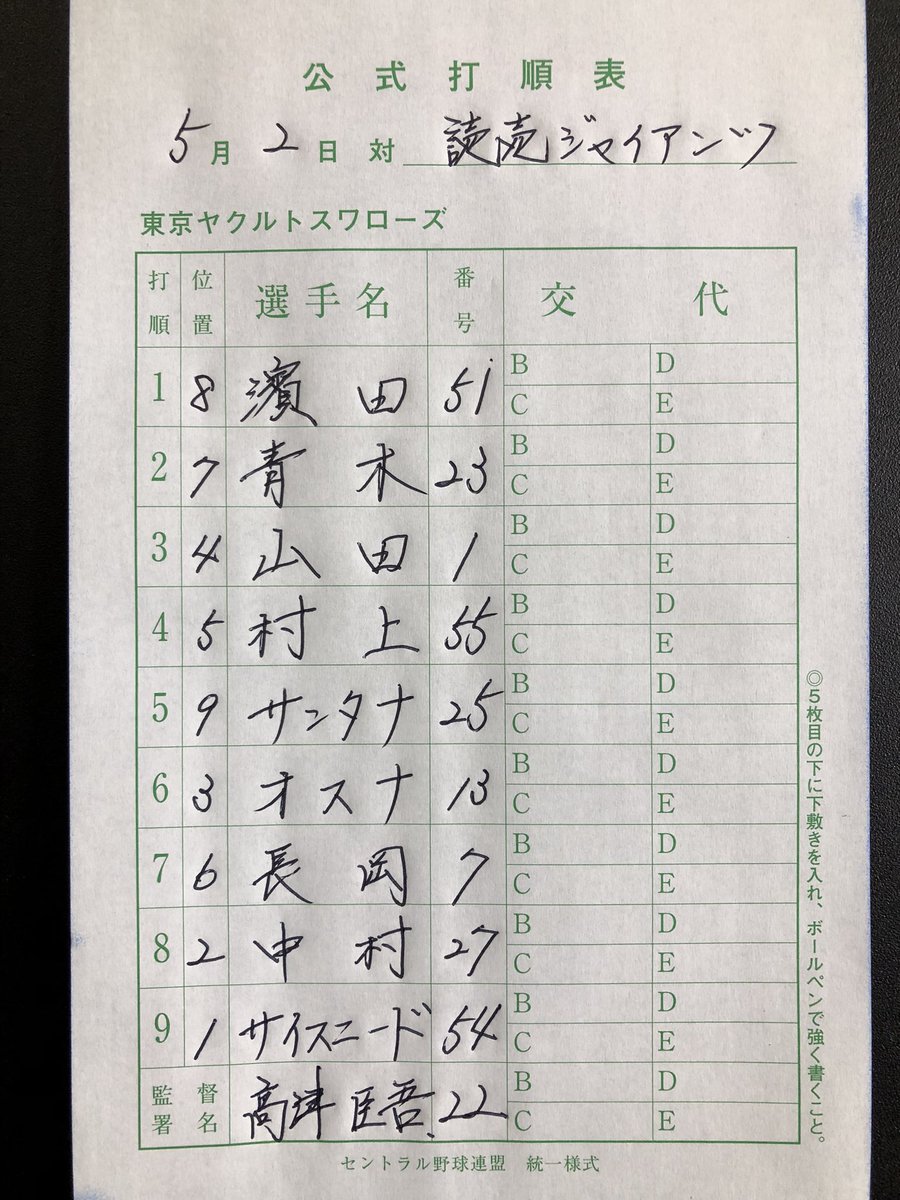 公式打順表
5月2日対 読売ジャイアンツ
東京ヤクルトスワローズ
打順 位置 選手名 番号 交代
1 8 濱田 51 B D
C E
2 7 青木 23 B D
C E
3 4 山田 1 B D
C E
4 5 村上 55 B D
C E
5 9 サンタナ 25 B D
C E
6 3 オスナ 13 B D
C E
7 6 長岡 7 B D
C E
8 2 中村 27 B D
C E
9 1 サイスニード 54 B D
C E
監督署名 高津臣吾 22 B D
C E
◎5枚目の下に下敷きを入れ、ボールペンで強く書くこと。
セントラル野球連盟 統一様式